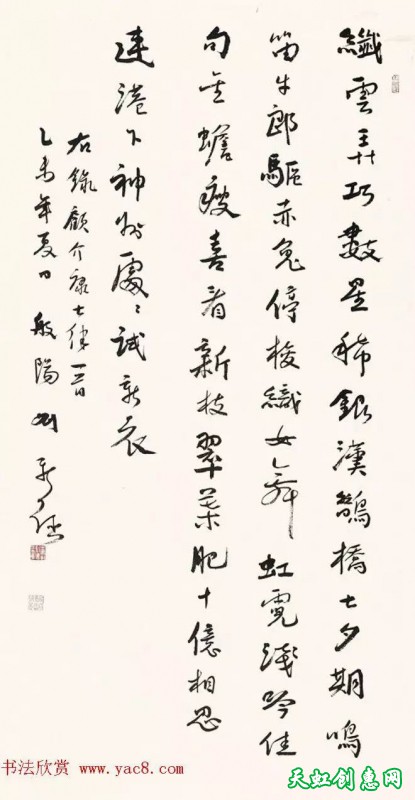 纖雲弄巧數星稀銀漢鵲橋七夕期鳴
笛牛郎驅赤兔停梭織女舞虹霓淺吟佳
句金蟾瘦喜看新枝翠葉肥十億相思
連港下神州處〻試新衣
右錄顧介康七律一首
乙未年夏日般陽
书法欣赏 www.yac8.com
天虹创惠网